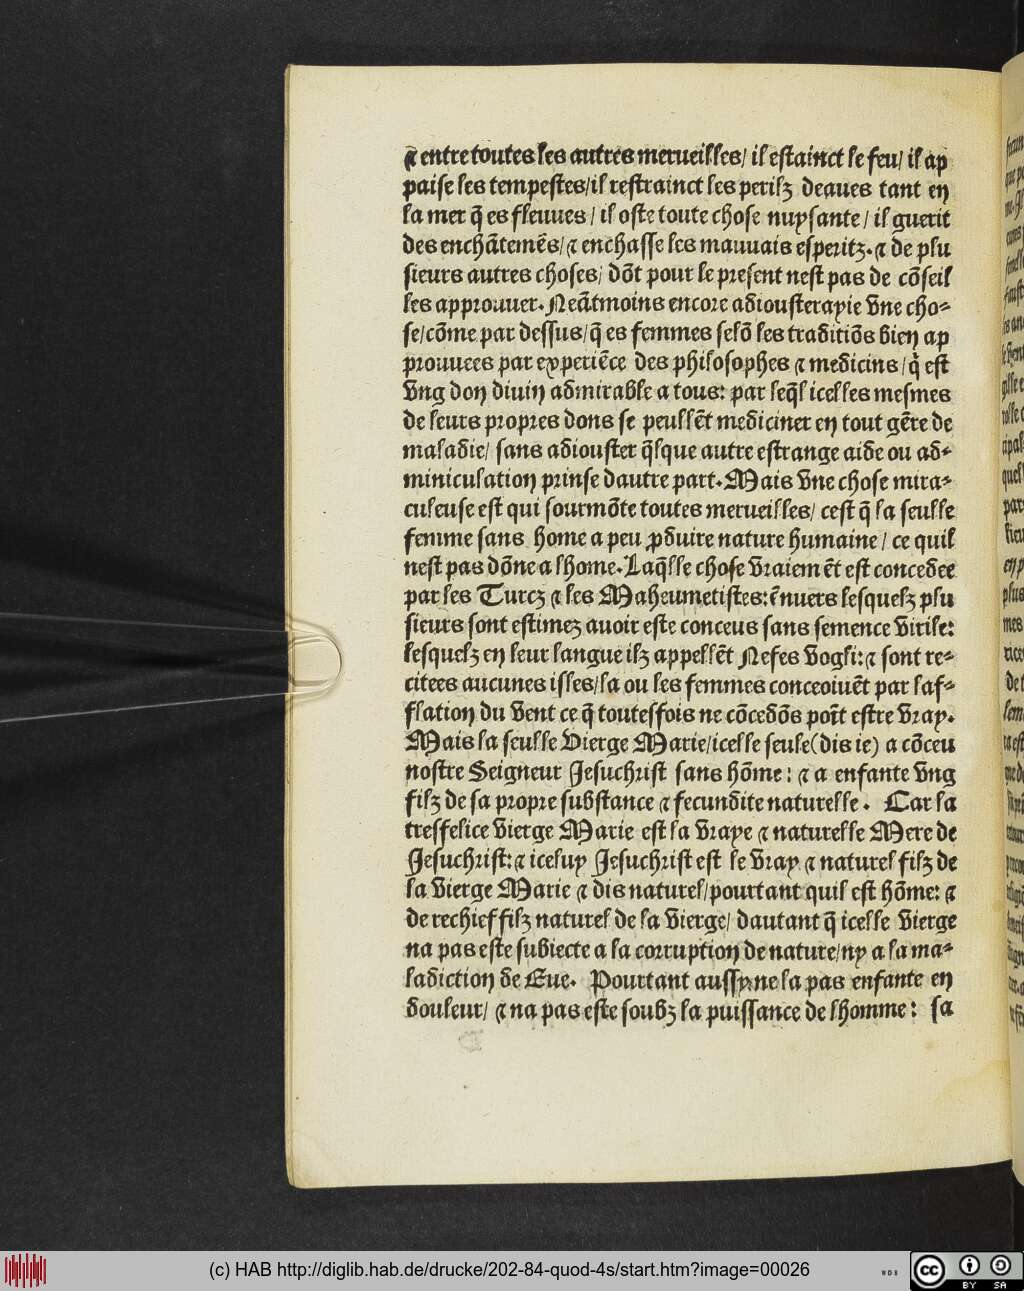 ⁊ entre toutes les autres merueilles/ il estainct le feu/ il ap
paise les tempestes/ il restrainct les perilz deaues tant en
la mer q̃ es fleuues / il oste toute chose nuysante / il guerit
des enchãtemẽs/ ⁊ enchasse les mauuais esperitz. ⁊ de plu
sieurs autres choses/ dõt pour le present nest pas de cõseil
les approuuer. Neãtmoins encore adiousterayie vne cho-
se/ cõme par dessus/ q̃ es femmes selõ les traditiõs bien ap
prouuees par experiẽce des philosophes ⁊ medicins / q̃ est
vng don diuin admirable a tous: par leq̃l icelles mesmes
de leurs propres dons se peullẽt mediciner en tout gẽre de
maladie/ sans adiouster q̃lque autre estrange aide ou ad-
miniculation prinse dautre part. Mais vne chose mira-
culeuse est qui sourmõte toutes merueilles/ cest q̃ la seulle
femme sans home a peu ꝓduire nature humaine / ce quil
nest pas dõne a lhome. Laq̃lle chose vraiemẽt est concedee
par les Turcz ⁊ les Maheumetistes: ẽnuers lesquelz plu
sieurs sont estimez auoir este conceus sans semence virile:
lesquelz en leur langue ilz appellẽt Nefes vogli: ⁊ sont re-
citees aucunes isles/ la ou les femmes conceoiuẽt par laf-
flation du vent ce q̃ toutesfois ne cõcedõs poĩt estre vray.
Mais la seulle vierge Marie/ icelle seule (dis ie) a cõceu
nostre Seigneur Jesuchrist sans hõme: ⁊ a enfante vng
filz de sa propre substance ⁊ fecundite naturelle. Car la
tresfelice vierge Marie est la vraye ⁊ naturelle Mere de
Jesuchrist: ⁊ iceluy Jesuchrist est le vray ⁊ naturel filz de
la vierge Marie ⁊ dis naturel/ pourtant quil est hõme: ⁊
de rechief filz naturel de la vierge/ dautant q̃ icelle vierge
na pas este subiecte a la corruption de nature/ ny a la ma-
ladiction de Eue. Pourtant aussy ne la pas enfante en
douleur/ ⁊ na pas este soubz la puissance de lhomme: sa
(c) HAB http://diglib.hab.de/drucke/202-84-quod-4s/start.htm?image=00026
cc BY SA